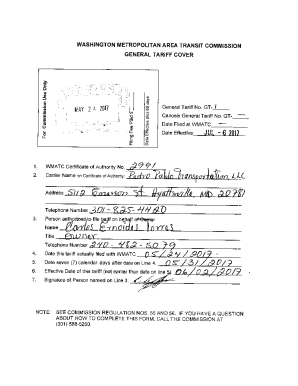 WASHINGTON METROPOLITAN AREA TRANSIT COMMISSION
GENERAL TARIFF COVER
For Commission Use Only
MAY 24 2017
Filing Fee Paid $
General Tariff No. GT- 1
Cancels General Tariff No. GT- —
Date Filed at WMATC —
Date Effective JUL - 6 2017
1. WMATC Certificate of Authority No. 2941
2. Carrier Name on Certificate of Authority: Pedro Pablo Transportation, LLC
Address 5112 Emerson St. Hyattsville, MD 20781
Telephone Number 301-825-4420
3. Person authorized to file tariff on behalf of
Name Carlos Torres
Title Owner
Telephone Number 240-462-5079
4. Date this tariff actually filed with WMATC 05/24/2017
5. Date seven (7) calendar days after date on Line 4 05/31/2017
6. Effective Date of this tariff (not earlier than date on line 5) 06/02/2017
7. Signature of Person named on Line 3
NOTE: SEE COMMISSION REGULATION NOS. 55 AND 56. IF YOU HAVE A QUESTION
ABOUT HOW TO COMPLETE THIS FORM, CALL THE COMMISSION AT
(301) 588-5260.